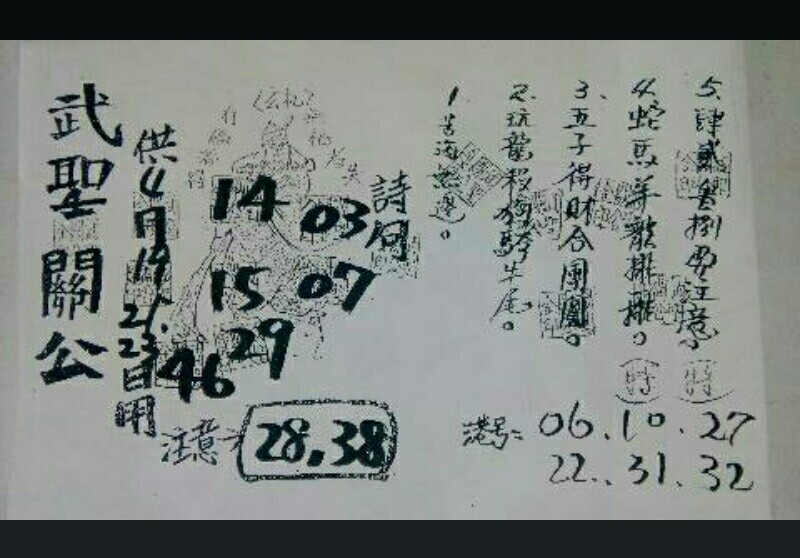 武聖關公
供4月19.21.23日用
14 03
15 07
46 29
注意:28,38
詩句
1.苦海無邊。
2.玩龍殺狗騎牛尾。
3.五子得財合團圓。
4.蛇馬羊龍排排。(特)
5.肆貳叁捌要注意。(特)
港号:06.10.27
22.31.32